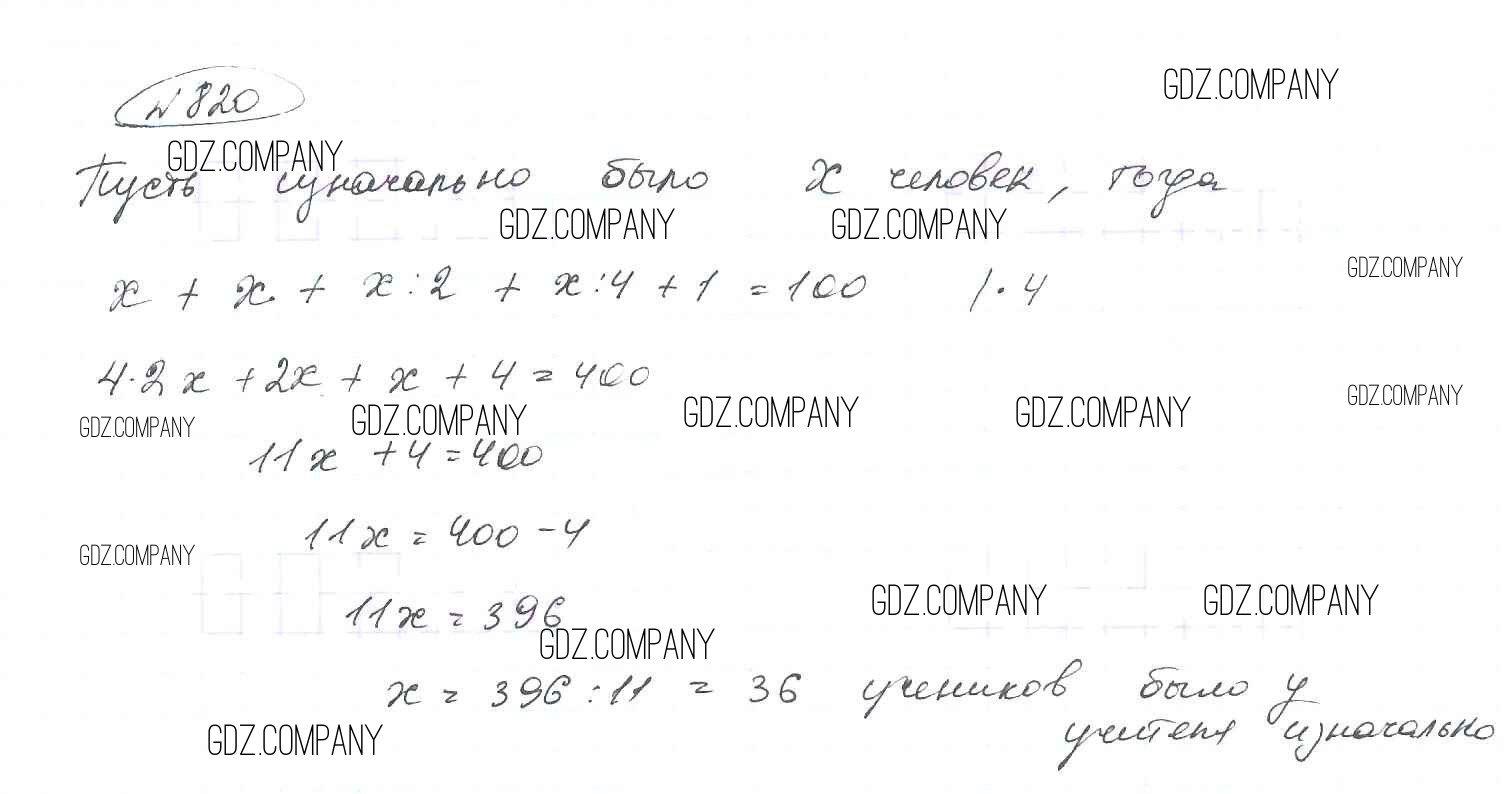 № 820
GDZ.COMPANY
GDZ.COMPANY
Пусть изначально было x человек, тогда
GDZ.COMPANY GDZ.COMPANY
GDZ.COMPANY
x + x + x:2 + x:4 + 1 = 100 |·4
4·2x + 2x + x + 4 = 400
GDZ.COMPANY
GDZ.COMPANY GDZ.COMPANY GDZ.COMPANY GDZ.COMPANY
11x + 4 = 400
11x = 400 - 4
GDZ.COMPANY
GDZ.COMPANY GDZ.COMPANY
11x = 396
GDZ.COMPANY
x = 396 : 11 = 36 учеников было у
учителя изначально
GDZ.COMPANY